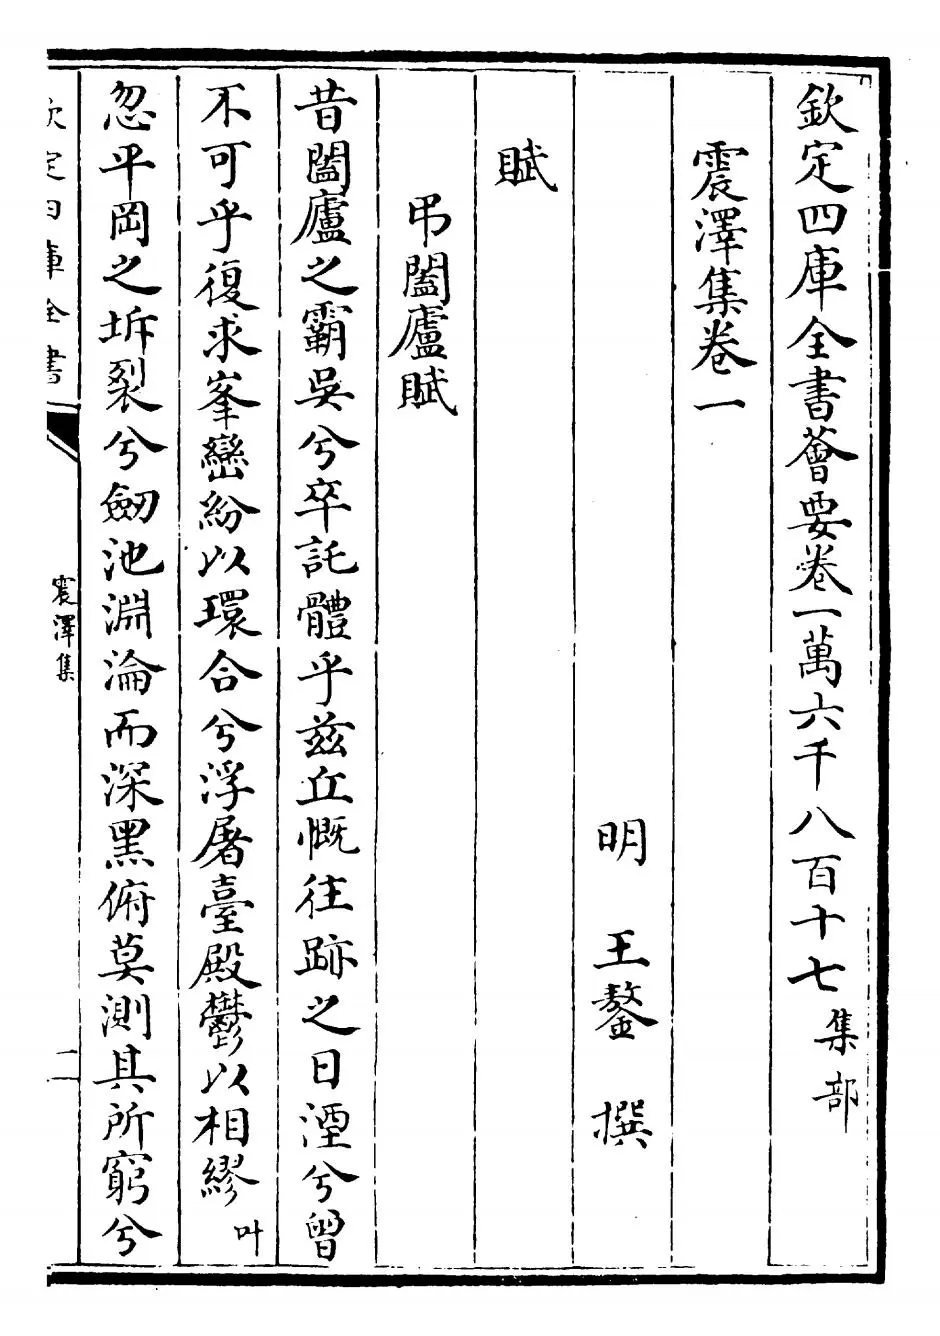 欽定四庫全書薈要卷一萬六千八百十七集部
震澤集卷一
明王鏊撰
賦
弔闔廬賦
昔闔廬之霸吳兮卒託體乎茲丘慨往跡之日湮兮曾
不可乎復求峯巒紛以環合兮浮屠臺殿鬱以相繆叶
忽平岡之坼裂兮劒池淵淪而深黑俯莫測其所窮兮
欽定四庫全書
震澤集
二